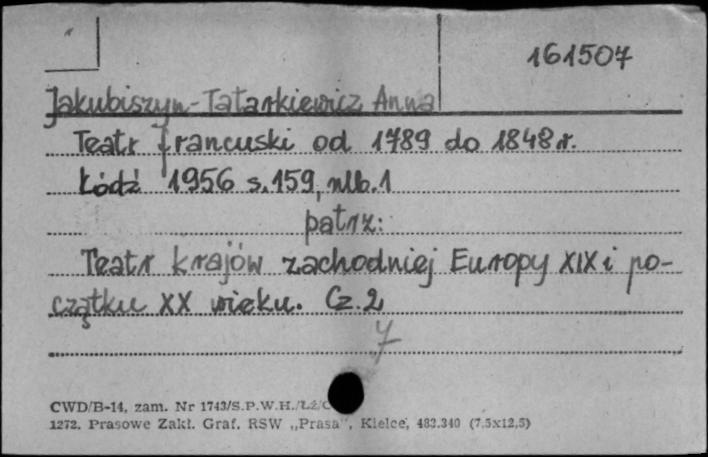 161507
Jakubiszyn-Tatarkiewicz Anna
Teatr francuski od 1789 do 1848 r.
Łódź 1956 s. 159, nlb. 1
patrz:
Teatr krajów zachodniej Europy XIX i po-
czątku XX wieku. Cz. 2
7
CWD/B-14, zam. Nr 1743/S.P.W.H./Łż/
1272. Prasowe Zakł. Graf. RSW „Prasa", Kielce, 483.340 (7,5x12,5)